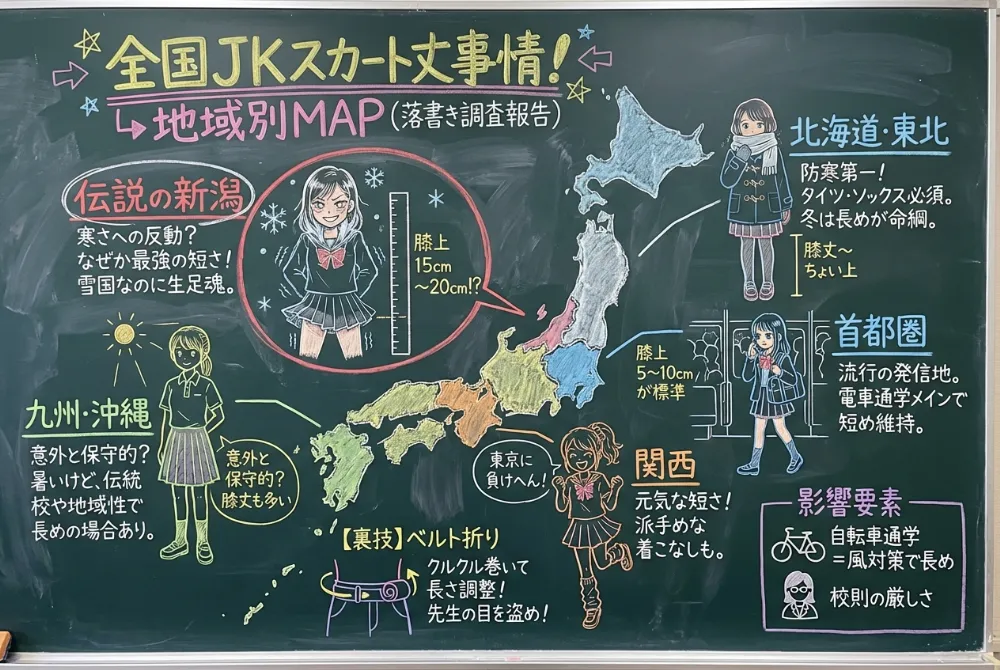 全国JKスカート丈事情!
地域別MAP(落書き調査報告)
伝説の新潟
寒さへの反動?
なぜか最強の短さ!
雪国なのに生足魂。
膝上
15cm
〜20cm!?
北海道・東北
防寒第一!
タイツ・ソックス必須。
冬は長めが命綱。
膝丈〜
ちょい上
首都圏
流行の発信地。
電車通学メインで
短め維持。
膝上
5〜10cm
が標準
九州・沖縄
意外と保守的?
暑いけど、伝統
校や地域性で
長めの場合あり。
意外と
保守的?
膝丈も多い
関西
元気な短さ!
派手めな
着こなしも。
東京に
負けへん!
【裏技】ベルト折り
クルクル巻いて
長さ調整!
先生の目を盗め!
影響要素
自転車通学
=風対策で長め
校則の厳しさ